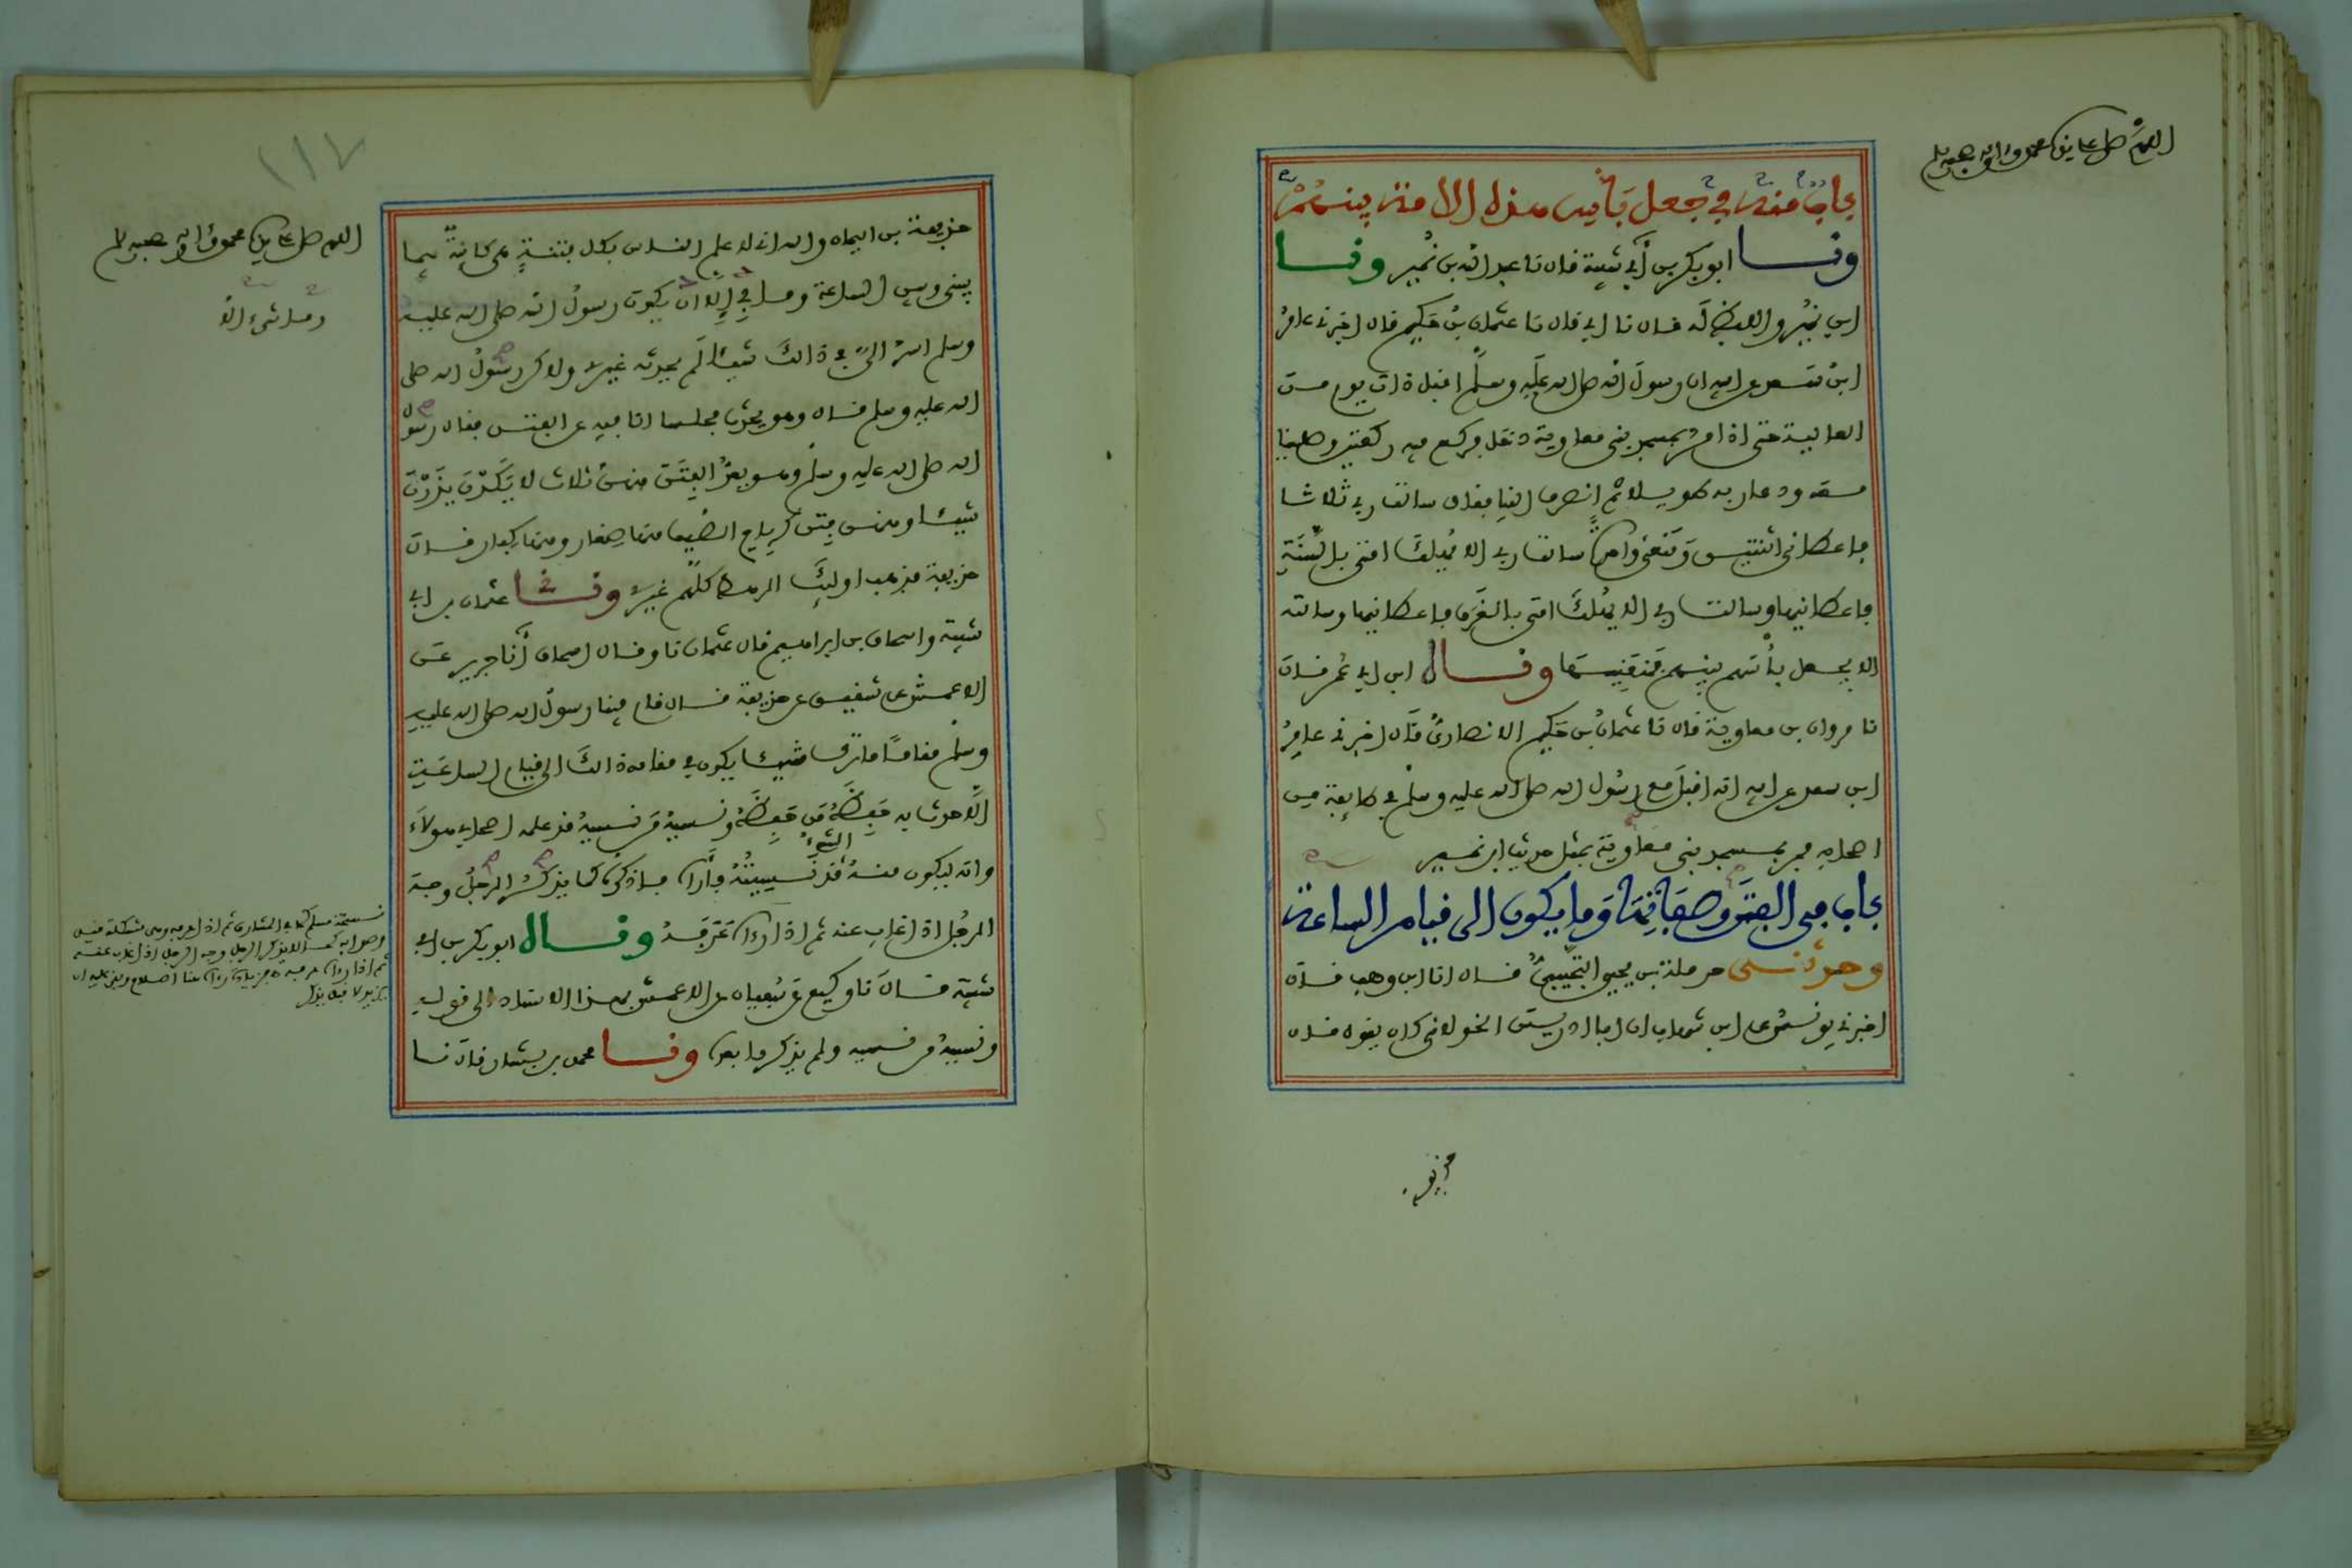 اللهم صل على سيدنا محمد وءاله وصحبه وسلم
باب منه في جعل بأس هذه الامة بينهم
ونا ابو بكر بن أبي شيبة قال نا عبد الله بن نمير ونا
ابن نمير واللفظ له قال نا ابي قال نا عثمان بن حكيم قال اخبرني عامر
ابن سعد عن ابيه ان رسول الله صلى الله عليه وسلم اقبل ذات يوم من
العالية حتى اذا مر بمسجد بني معاوية دخل فركع فيه ركعتين وصلينا
معه ودعا ربه طويلا ثم انصرف الينا فقال سالت ربي ثلاثا
فاعطاني اثنتين ومنعني واحدة سالت ربي الا يهلك امتي بالسنة
فاعطانيها وسالت ربي الا يهلك امتي بالغرق فاعطانيها وسالته
الا يجعل بأسهم بينهم فمنعنيها وقال ابن ابي عمر قال
نا مروان بن معاوية قال نا عثمان بن حكيم الانصاري قال اخبرني عامر
ابن سعد عن ابيه انه اقبل مع رسول الله صلى الله عليه وسلم في طايفة من
اصحابه فمر بمسجد بني معاوية بمثل حديث ابن نمير
باب في الفتن وصفاتها وما يكون الى قيام الساعة
وحدثني حرملة بن يحيى التجيبي قال انا ابن وهب قال
اخبرني يونس عن ابن شهاب ان ابا ادريس الخولاني كان يقول قال
حذيفة
١١٧
اللهم صل على سيدنا محمد وءاله وصحبه وسلم
حذيفة بن اليمان والله اني لاعلم الناس بكل فتنة هي كاينة فيما
بيني وبين الساعة وما بي الا ان يكون رسول الله صلى الله عليه
وسلم اسر الي في ذالك شيئا لم يحدثه غيري ولاكن رسول الله صلى
الله عليه وسلم قال وهو يحدث مجلسا انا فيه عن الفتن فقال رسول
الله صلى الله عليه وسلم وهو يعد الفتن منهن ثلاث لا يكدن يذرن
شيئا ومنهن فتن كرياح الصيف منها صغار ومنها كبار قال
حذيفة فذهب اوليك الرهط كلهم غيري ونا عثمان بن ابي
شيبة واسحاق بن ابراهيم قال عثمان نا وقال اسحاق أنا جرير عن
الاعمش عن شقيق عن حذيفة قال قام فينا رسول الله صلى الله عليه
وسلم مقاما ما ترك شيئا يكون في مقامه ذالك الى قيام الساعة
الا حدث به حفظه من حفظه ونسيه من نسيه قد علمه اصحابي هولاء
وانه ليكون منه الشيء قد نسيته فأراه فاذكره كما يذكر الرجل وجه
الرجل اذا غاب عنه ثم اذا رءاه عرفه وقال ابو بكر بن ابي
شيبة قال نا وكيع عن سفيان عن الاعمش بهذا الاسناد الى قوله
ونسيه من نسيه ولم يذكر ما بعده ونا محمد بن بشار قال نا